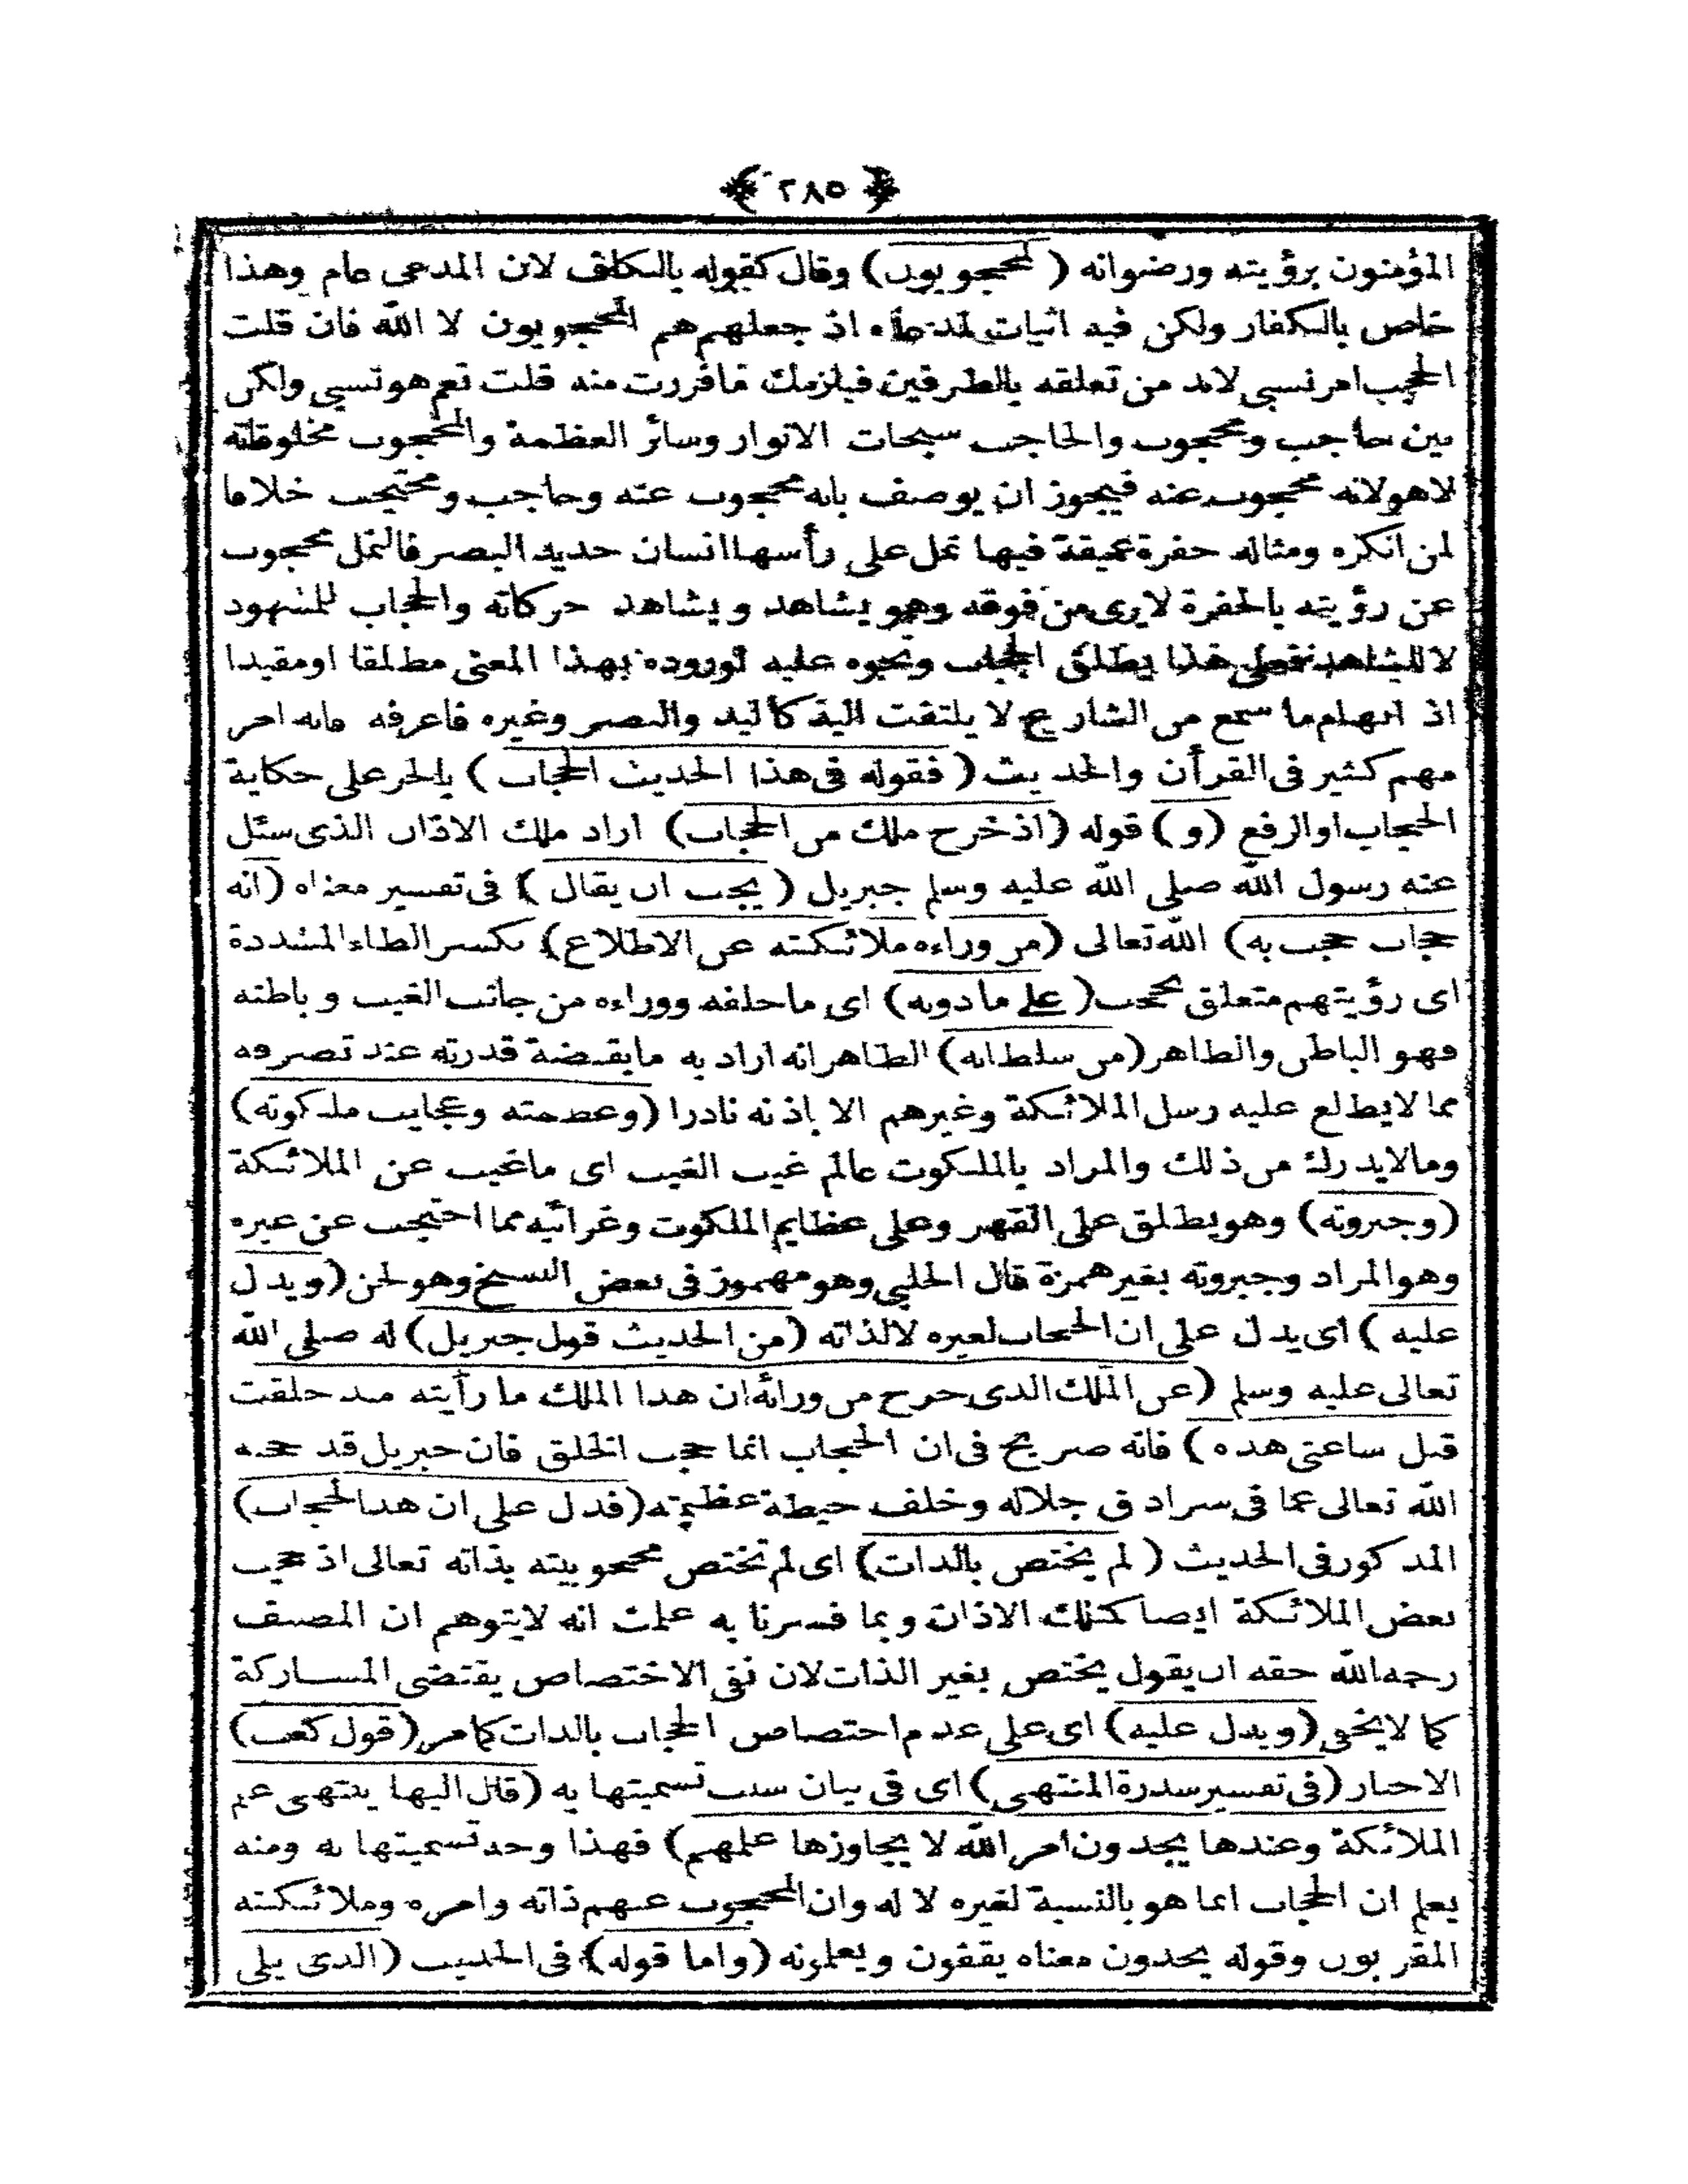 ﴿ ٢٨٥ ﴾
المؤمنون برؤيته ورضوانه (لمحجوبون) وقال كقوله بالكاف لان المدعى عام وهذا
خاص بالكفار ولكن فيه اثبات لمدعاه اذ جعلهم هم المحجوبون لا الله فان قلت
الحجب امر نسبى لابد من تعلقه بالطرفين فيلزمك مافررت منه قلت نعم هو نسبى ولكن
بين حاجب ومحجوب والحاجب سبحات الانوار وسائر العظمة والمحجوب مخلوقاته
لاهو لانه محجوب عنه فيجوز ان يوصف بانه محجوب عنه وحاجب ومحتجب خلافا
لمن انكره ومثاله حفرة عميقة فيها نمل على رأسها انسان حديد البصر فالنمل محجوب
عن رؤيته بالحفرة لايرى من فوقه وهو يشاهد ويشاهد حركاته والحجاب للمشهود
لا للشاهد فعلى هذا يطلق الحجاب ونحوه عليه لوروده بهذا المعنى مطلقا اومقيدا
اذ ايهام ما سمع من الشارع لا يلتفت اليه كاليد والبصر وغيره فاعرفه فانه امر
مهم كثير فى القرأن والحديث (فقوله فى هذا الحديث الحجاب) بالجر على حكاية
الحجاب اوالرفع (و) قوله (اذ خرج ملك من الحجاب) اراد ملك الاذان الذى سئل
عنه رسول الله صلى الله عليه وسلم جبريل (يجب ان يقال) فى تفسير معناه (انه
حجاب حجب به) الله تعالى (من وراءه من ملائكته عن الاطلاع) بكسر الطاء المشددة
اى رؤيتهم متعلق بحجب (على مادونه) اى ماخلفه ووراءه من جانب الغيب وباطنه
فهو الباطن والظاهر (من سلطانه) الظاهر انه اراد به مابقبضة قدرته عند تصرفه
مما لايطلع عليه رسل الملائكة وغيرهم الا باذنه نادرا (وعظمته وعجايب ملكوته)
ومالايدرك من ذلك والمراد بالملكوت عالم غيب الغيب اى ماغيب عن الملائكة
(وجبروته) وهو يطلق على القهر وعلى عظايم الملكوت وغرائبه مما احتجب عن غيره
وهو المراد وجبروته بغير همزة قال الحلبى وهو مهموز فى بعض النسخ وهو لحن (ويدل
عليه) اى يدل على ان الحجاب لغيره لالذاته (من الحديث قول جبريل) له صلى الله
تعالى عليه وسلم (عن الملك الذى خرج من ورائه ان هذا الملك ما رأيته منذ خلقت
قبل ساعتى هذه) فانه صريح فى ان الحجاب انما حجب الخلق فان جبريل قد حجبه
الله تعالى عما فى سرادق جلاله وخلف حيطة عظمته (فدل على ان هذا الحجاب)
المذكور فى الحديث (لم يختص بالذات) اى لم تختص محجوبيته بذاته تعالى اذ حجب
بعض الملائكة ايضا كملك الاذان وبما فسرنا به علمت انه لايتوهم ان المصنف
رحمه الله حقه ان يقول يختص بغير الذات لان نفى الاختصاص يقتضى المشاركة
كما لايخفى (ويدل عليه) اى على عدم اختصاص الحجاب بالذات كمامر (قول كعب)
الاحبار (فى تفسير سدرة المنتهى) اى فى بيان سبب تسميتها به (قال اليها ينتهى علم
الملائكة وعندها يجدون امر الله لا يجاوزها علمهم) فهذا وجه تسميتها به ومنه
يعلم ان الحجاب انما هو بالنسبة لغيره لا له وان المحجوب عنهم ذاته وامره وملائكته
المقربون وقوله يجدون معناه يقفون ويعلمونه (واما قوله) فى الحديث (الذى يلى